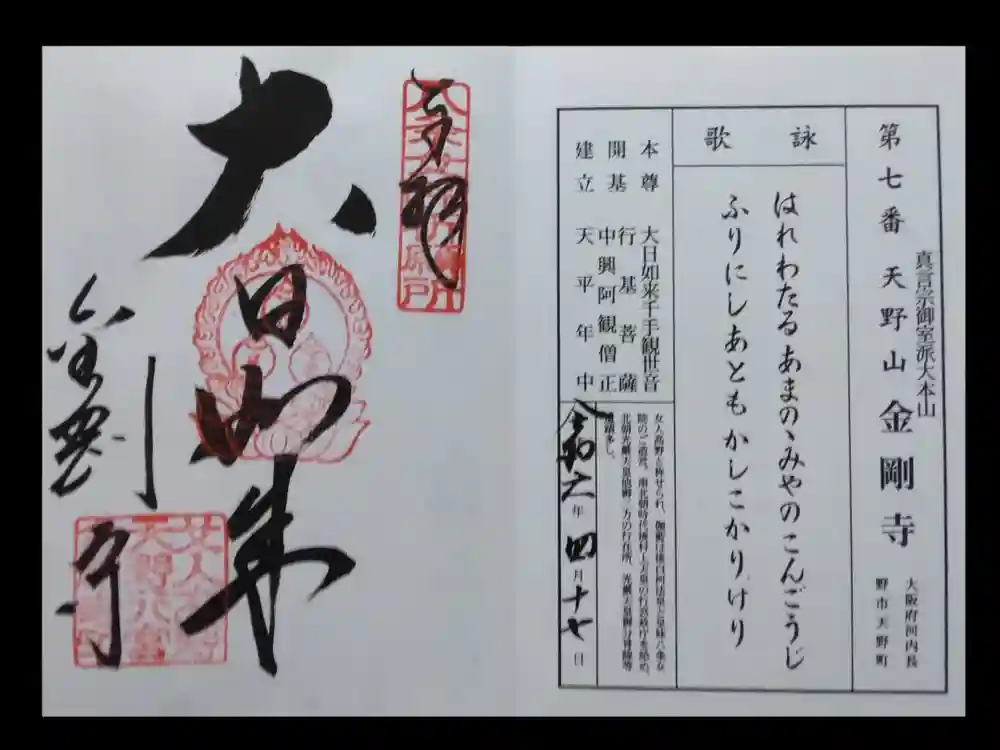 第七番 天野山 金剛寺
真言宗御室派大本山
大阪府河内長
野市天野町
詠 歌
はれわたるあまのゝみやのこんごうじ
ふりにしあともかしこかりけり
本尊 大日如来千手観世音
開基 行基菩薩
中興阿観僧正
建立 天平年中
女人高野と称せられ、
遺蹟多し。
令和六年四月十七日
奉拝
大日如来
金剛寺